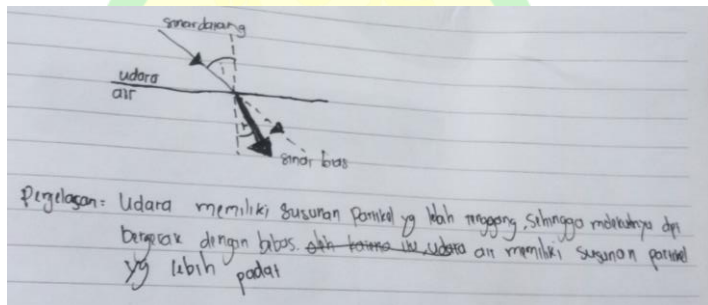 sinar datang
udara
air
r
sinar bias
Penjelasan = Udara memiliki susunan partikel yg lebih renggang, sehingga molekulnya dpt
bergerak dengan bebas. oleh karena itu, udara air memiliki susunan partikel
yg lebih padat